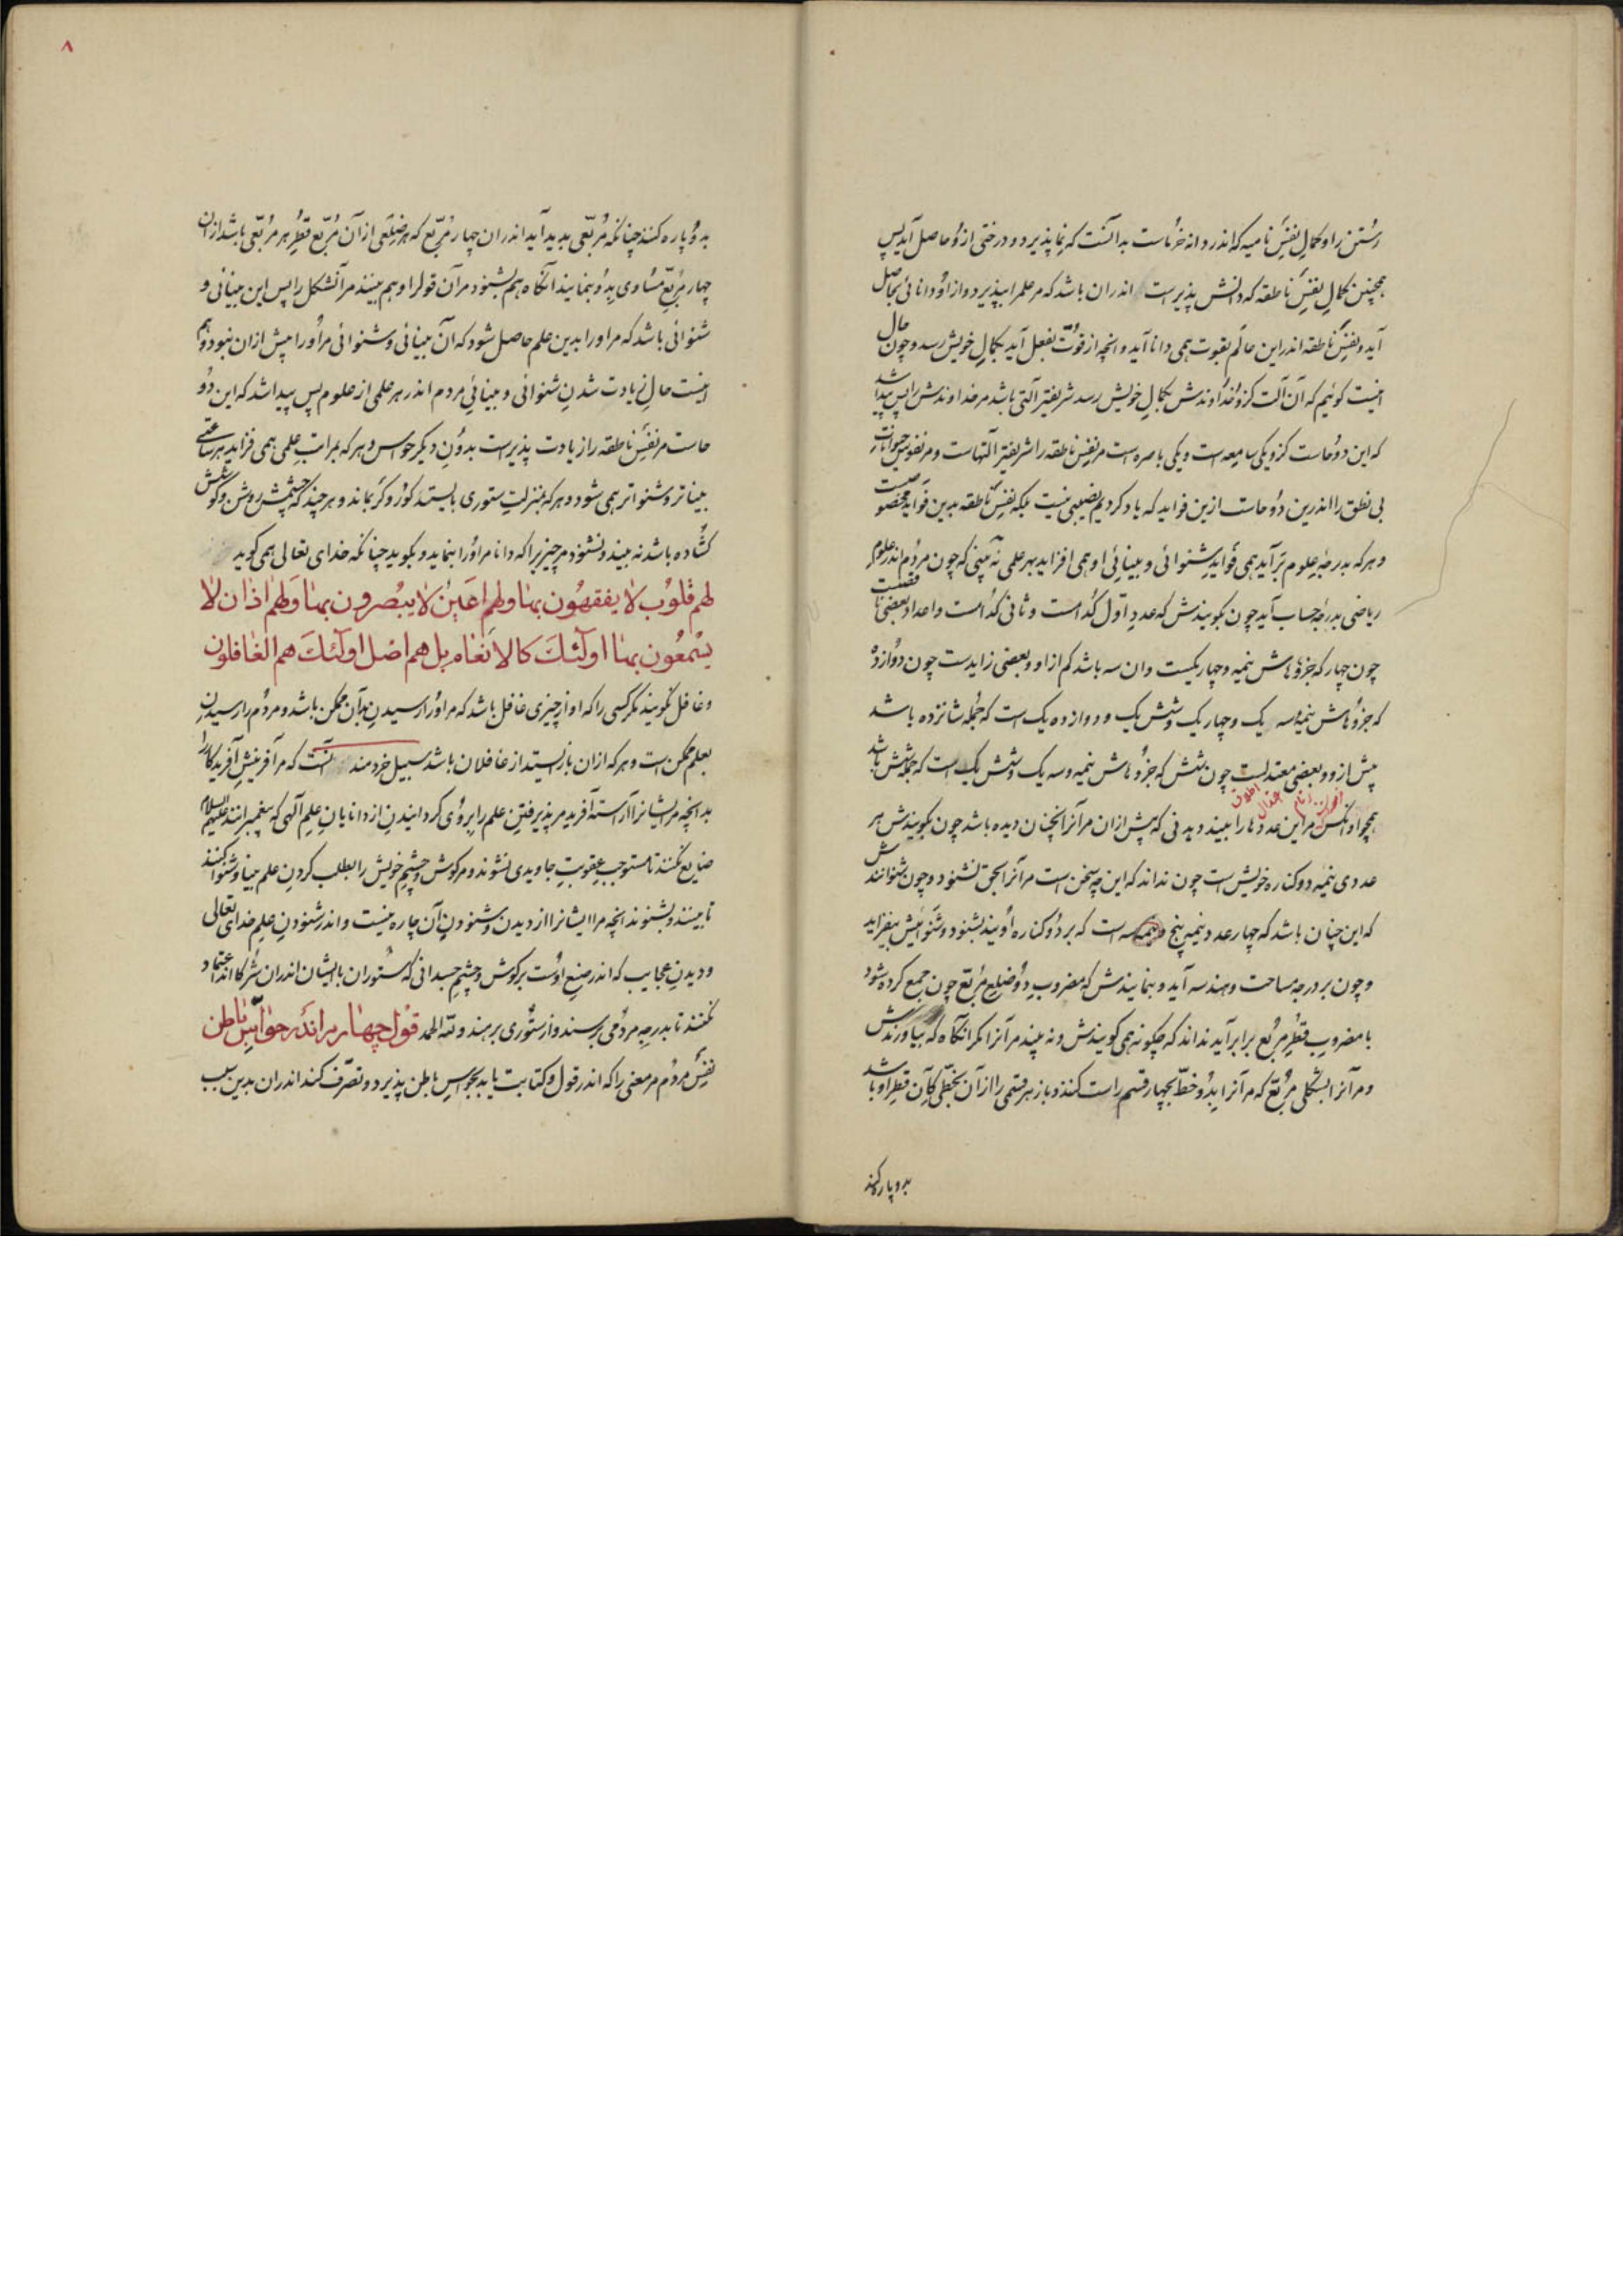 رستن را و کمال نفس نامیه که اندر دانه خرماست بدانست که نما پذیرد و درختی ازو حاصل آید پس
همچنین کمال نفس ناطقه که دانش پذیرست اندران باشد که مر علم را بپذیرد و از او دانائی بحاصل
آید و نفس ناطقه اندر این عالم بقوت همی دانا آید و انچه از قوت بفعل آید بکمال خویش رسد و چون حال
اینست کوئیم که آن آلت کزو خداوندش بکمال خویش رسد شریفتر آلتی باشد مر خداوندش را پس پیدا شد
که این دو حاست کزو یکی سامعه است و یکی باصره است مر نفس ناطقه را شریفتر آلتهاست و مر نفوس حیوانات
بی نطق را اندرین دو حاست ازین فواید که یاد کردیم نصیبی نیست بلکه نفس ناطقه بدین فواید مخصوصست
و هرکه بدرجه علوم برآید همی فواید شنوائی و بینائی او همی افزاید بهر علمی نه بینی که چون مردم اندر علوم
ریاضی بدرجه حساب آید چون بکویندش که عدد اول کدامست و ثانی کدامست و اعداد بعضی ناقصست
چون چهار که جزوهاش نیمه و چهاریکست وان سه باشد کم ازو و بعضی زایدست چون دوازده
که جزوهاش نیمه و سه یک و چهار یک و شش یک و دوازده یک است که جمله شانزده باشد
بیش ازو و بعضی معتدلست چون شش که جزوهاش نیمه و سه یک و شش یک است که جمله شش باشد
همچو او انکس مر این عددها را ببیند دیدنی که پیش ازان مر آنرا انچنان ندیده باشد چون بکویندش هر
عددی نیمه دو کناره خویش است چون نداند که این چه سخن است مر آنرا بحق نشنود و چون بشنوانندش
که این چنان باشد که چهار عدد نیمه پنج و نیمه سه است که بر دو کناره اویند بشنود و شنوائیش بیفزاید
و چون بر درجه مساحت و هندسه آید و بنمایندش که مضروب دو ضلع مربع چون جمع کرده شود
با مضروب قطر مربع برابر آید نداند که چکونه همی کویندش و نه بیند مر آنرا مکر انکاه که بیاورندش
و مر آنرا بشکلی مربع که مر آنرا بدو خط بچهار قسم راست کنند و باز هر قسمی را از آن بخطی که آن قطر او باشد
بدو پاره کنند
۸
بدو پاره کنند چنانکه مربعی پدید آید اندران چهار مربع که هر ضلعی از آن مربع قطر هر مربعی باشد ازان
چهار مربع مساوی بدو بنمایند آنکاه هم بشنود مر آن قول را و هم ببیند مر آنشکل را پس این بینائی و
شنوائی باشد که مر او را بدین علم حاصل شود که آن بینائی و شنوائی مر او را پیش ازان نبود و هم
اینست حال زیادت شدن شنوائی و بینائی مردم اندر هر علمی از علوم پس پیدا شد که این دو
حاست مر نفس ناطقه را زیادت پذیرست بدون دیکر حواس و هر که بمراتب علمی همی فزاید هر ساعتی
بیناتر و شنواتر همی شود و هر که بمنزلت ستوری بایستد کور و کر بماند و هر چند که چشمش روشن و کوشش
کشاده باشد نه بیند و نشنود مر چیزیرا که دانا مر او را بنماید و بکوید چنانکه خدای تعالی همی کوید
لهم قلوب لا یفقهون بها ولهم اعین لا یبصرون بها ولهم اذان لا
یسمعون بها اولئک کالانعام بل هم اضل اولئک هم الغافلون
و غافل نکویند مکر کسی را که او از چیزی غافل باشد که مر او را رسیدن بدان ممکن باشد و مردم را رسیدن
بعلم ممکن است و هر که ازان بازایستد از غافلان باشد سبیل خردمند آنست که مر آفرینش آفریدکار را
بدانچه مر ایشانرا آراسته آفرید مر پذیرفتن علم را بروی کردانیدن از دانایان علم الهی که پیغمبرانند علیهم السلام
ضایع نکنند تا مستوجب عقوبت جاویدی نشوند و مر کوش و چشم خویش را بطلب کردن علم بینا و شنوا کنند
تا ببینند و بشنوند انچه مر ایشانرا از دیدن و شنودن آن چاره نیست و اندر شنودن علم خدای تعالی
و دیدن عجایب که اندر صنع اوست بر کوش و چشم جسدانی که ستوران با ایشان اندران شرکااند اعتماد
نکنند تا بدرجه مردمی برسند و از ستوری برهند ولله الحمد قول چهارم اندر حواس باطن
نفس مردم مر معنی را که اندر قول و کتابت یابد بحواس باطن پذیرد و تصرف کند اندران بدین سبب